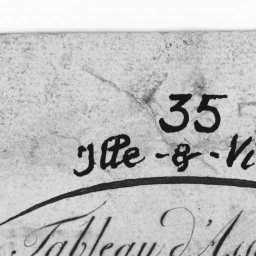 35
Ille-&-Vi
Tableau d'As